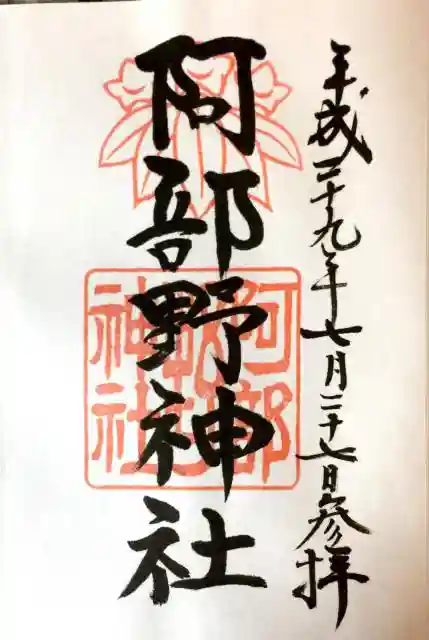 平成二十九年七月二十七日参拝
阿部野神社
阿部野神社